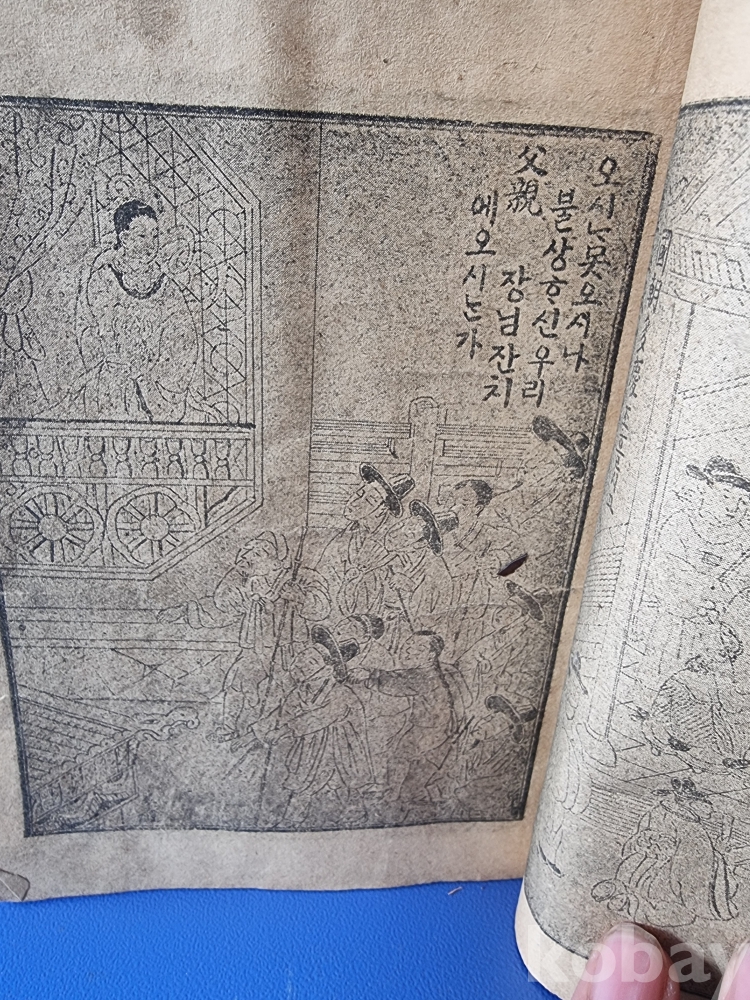 오시ᄂᆞᆫ못오시나
불상ᄒᆞ신우리
父親 장님잔치
에오시ᄂᆞᆫ가
kobay